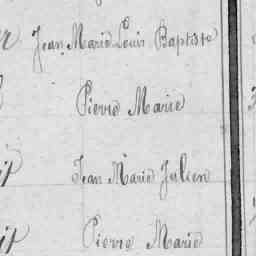 Jean Marie Louis Baptiste
Pierre Marie
Jean Marie Julien
Pierre Marie